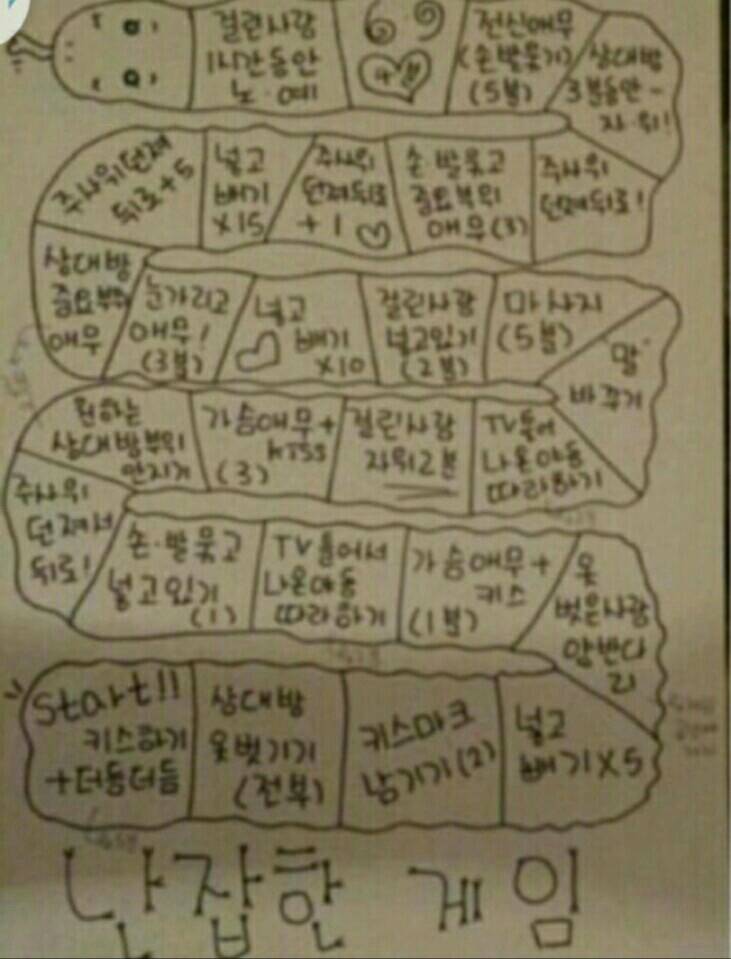 걸린사람
1시간동안
노·예
6·9
전신애무
(손발묶기)
(5분)
상대방
3분동안-
자·위!
주사위던져
뒤로+5
넣고
빼기
X15
주사위
던져뒤로
+1
손·발묶고
중요부위
애무(3)
주사위
던져뒤로!
상대방
중요부위
애무
눈가리고
애무!
(3분)
넣고
빼기
X10
걸린사람
넣고있기
(2분)
마사지
(5분)
"말"
바꾸기
원하는
상대방부위
만지기
가슴애무+
kiss
(3)
걸린사람
자위2분
TV틀어
나온야동
따라하기
주사위
던져서
뒤로!
손·발묶고
넣고있기
(1)
TV틀어서
나온야동
따라하기
가슴애무+
키스
(1분)
옷
벗은사람
start!!
키스하기
+더듬더듬
상대방
옷벗기기
(전부)
키스마크
남기기(2)
넣고
빼기X5
난잡한 게임